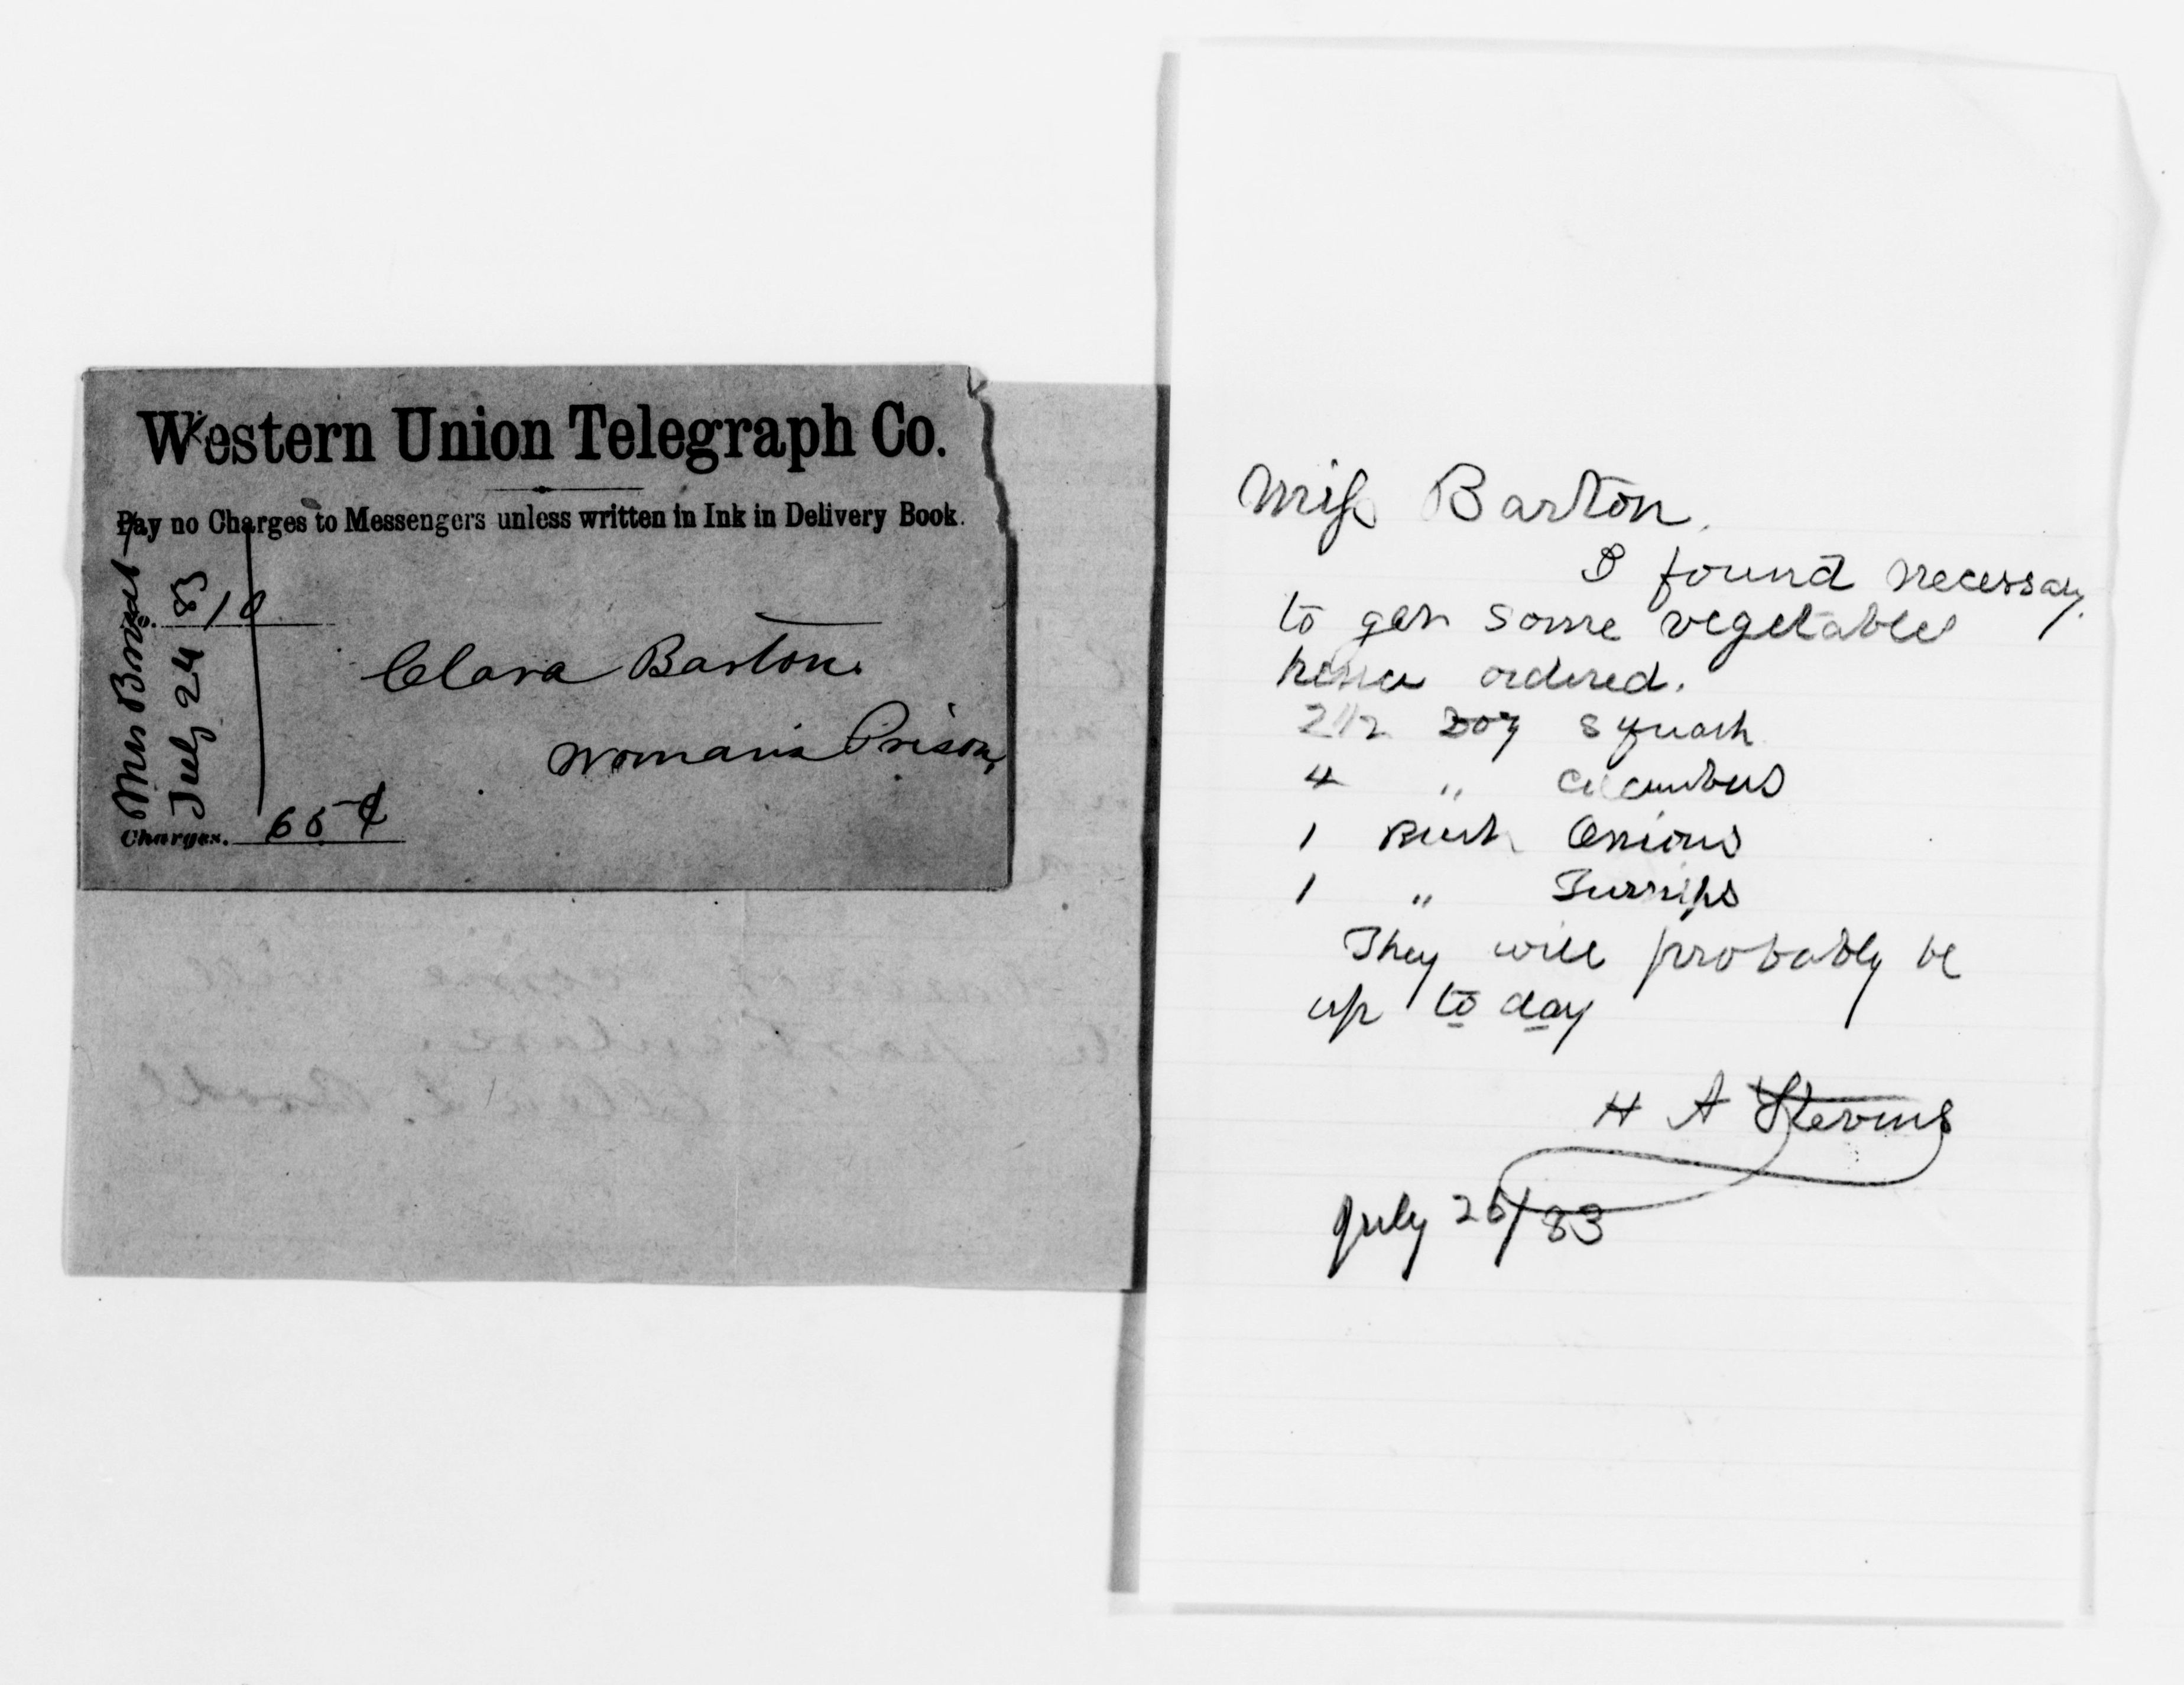 Western Union Telegraph Co.
Pay no Charges to Messengers unless written in Ink in Delivery Book.
No. 10
Clara Barton.
Woman's Prison,
Charges. 65 ¢
July 24 83
Miss Barton.
I found necessary
to get some vegetables
hence ordered.
2 1/2 Doz Squash
4 " Cucumbers
1 Bush Onions
1 " Turnips
They will probably be
up to day
H A Stevens
July 26/83